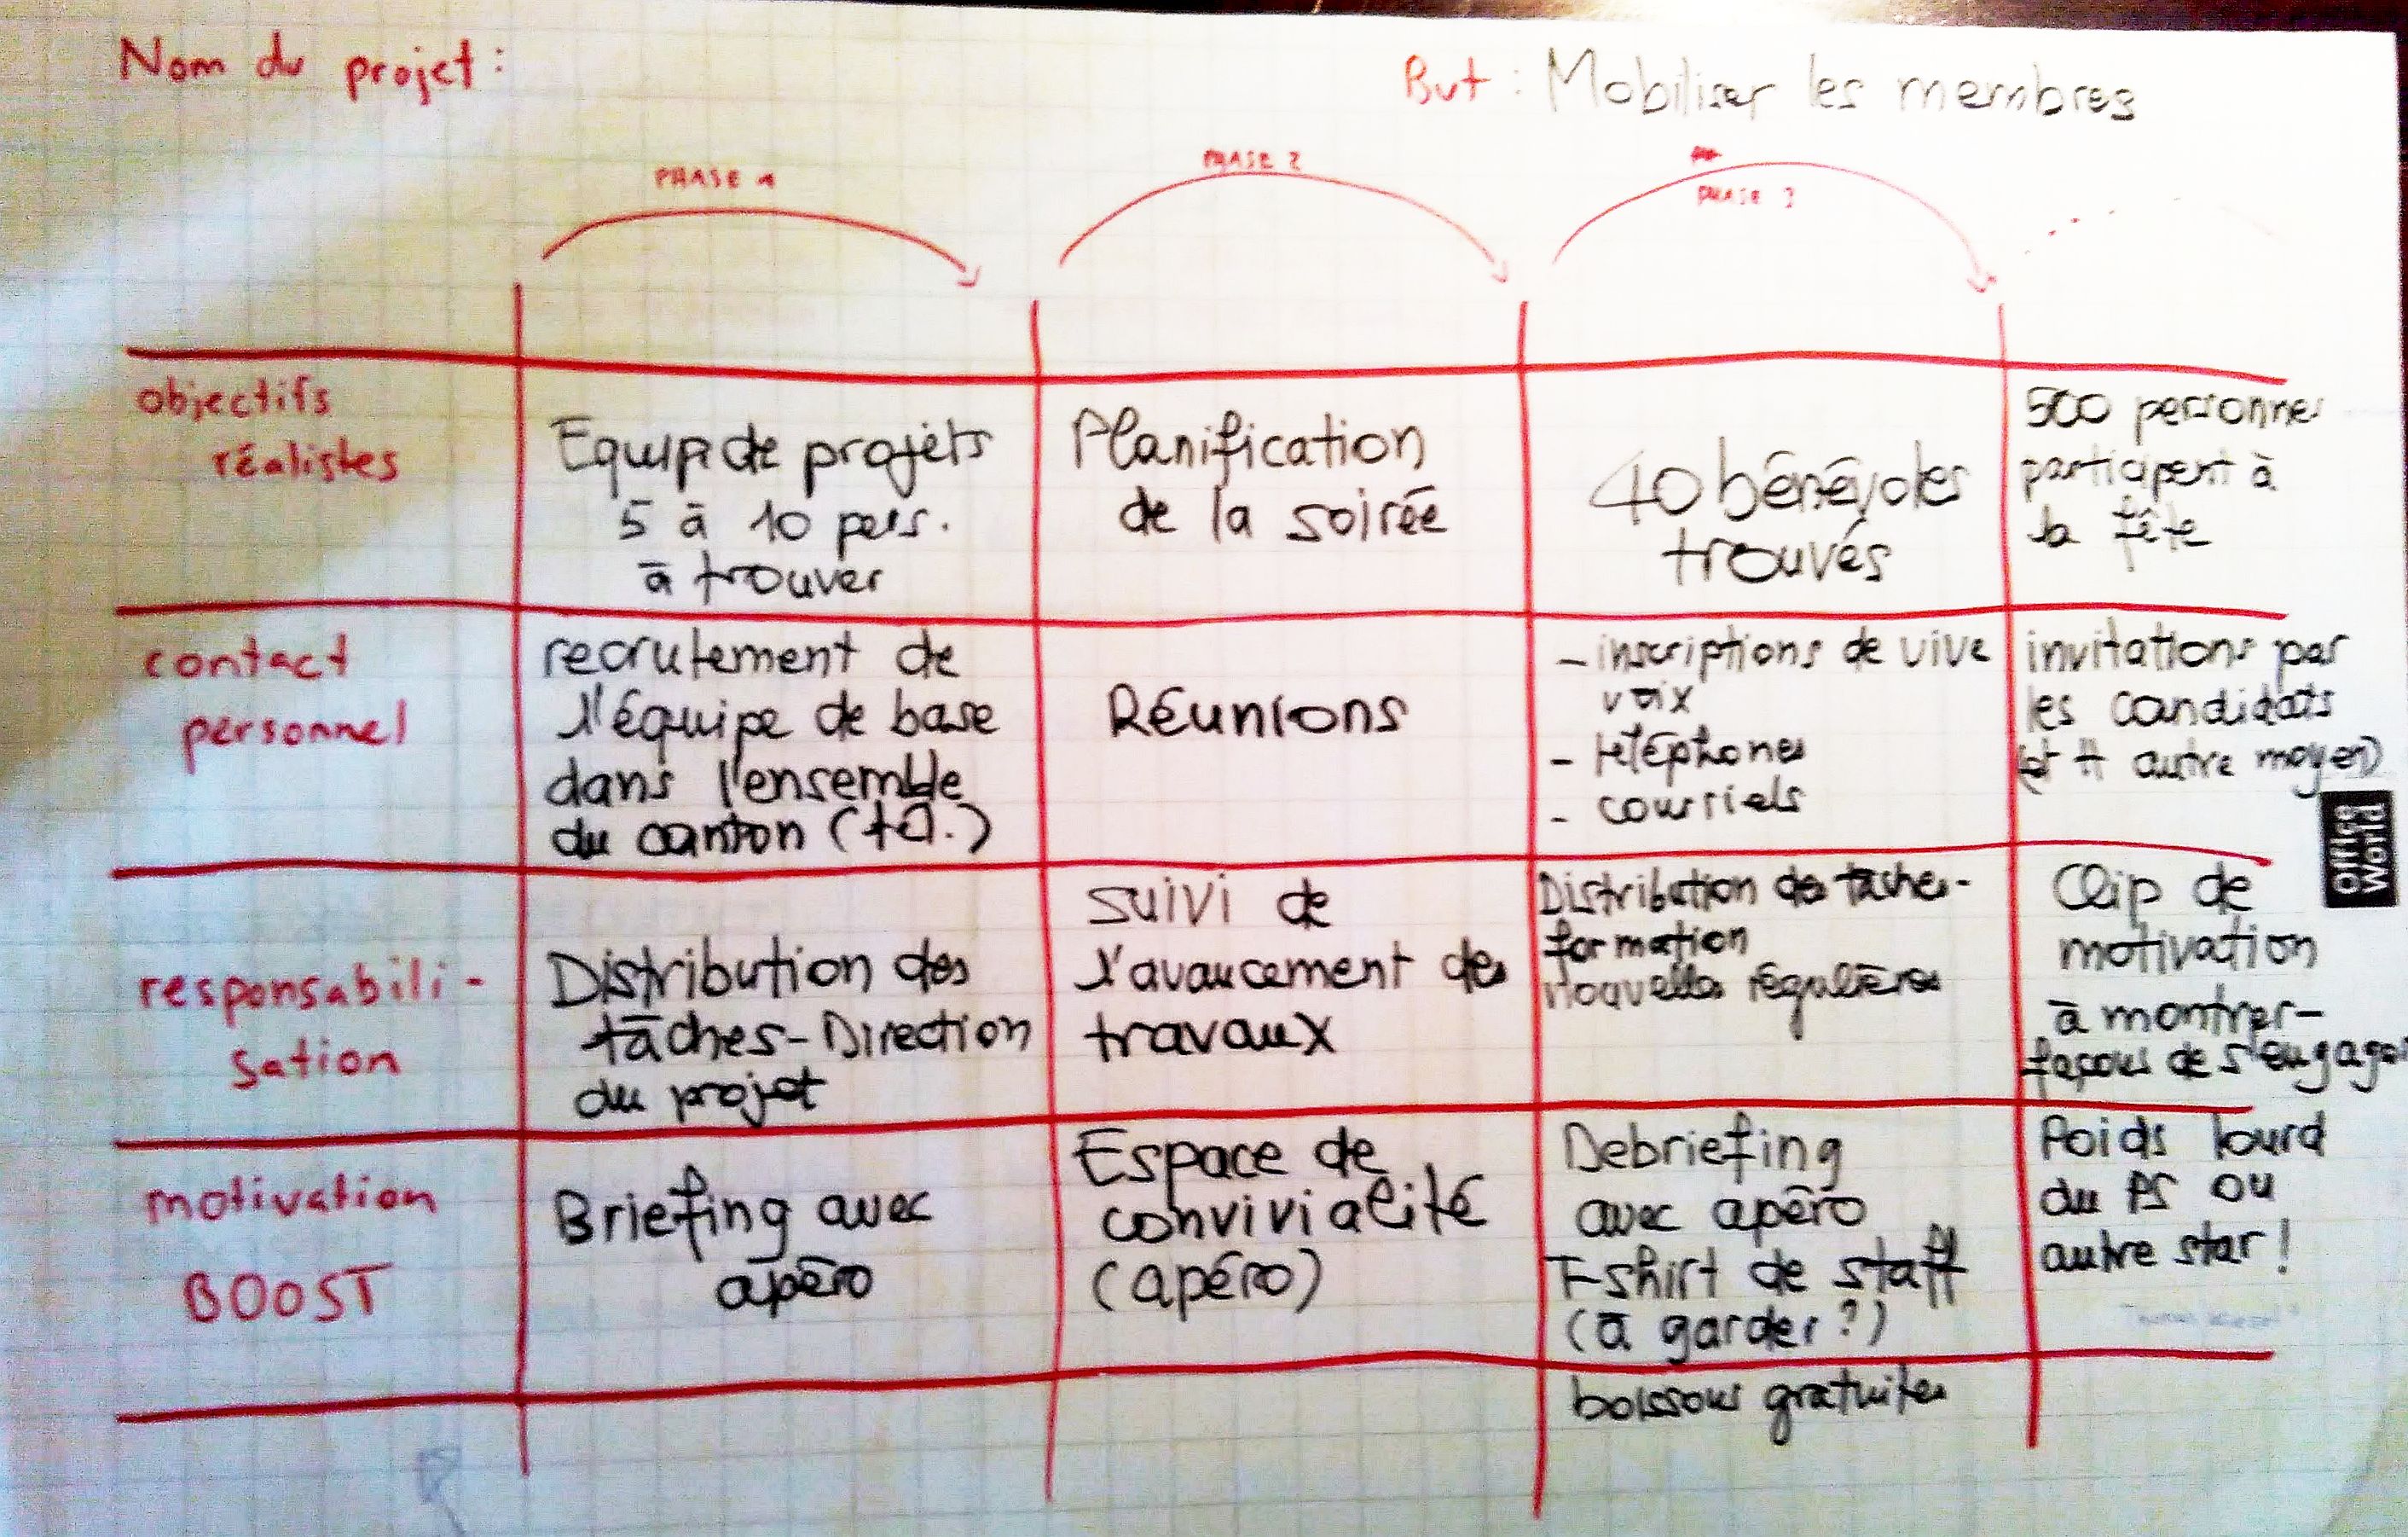 Nom du projet :
But : Mobiliser les membres
PHASE 1
PHASE 2
PHASE 3
objectifs
réalistes
Equipe de projets
5 à 10 pers.
à trouver
Planification
de la soirée
40 bénévoles
trouvés
500 personnes
participent à
la fête
contact
personnel
recrutement de
l'équipe de base
dans l'ensemble
du canton (tél.)
Réunions
- inscriptions de vive
voix
- téléphones
- courriels
invitations par
les candidats
(et tt autre moyen)
Office
World
responsabili-
sation
Distribution des
tâches-Direction
du projet
suivi de
l'avancement des
travaux
Distribution des tâches-
formation
nouvelles régulières
Clip de
motivation
à montrer-
façons de s'engager
motivation
BOOST
Briefing avec
apéro
Espace de
convivialité
(apéro)
Debriefing
avec apéro
T-shirt de staff
(à garder?)
boissons gratuites
Poids lourd
du PS ou
autre star!